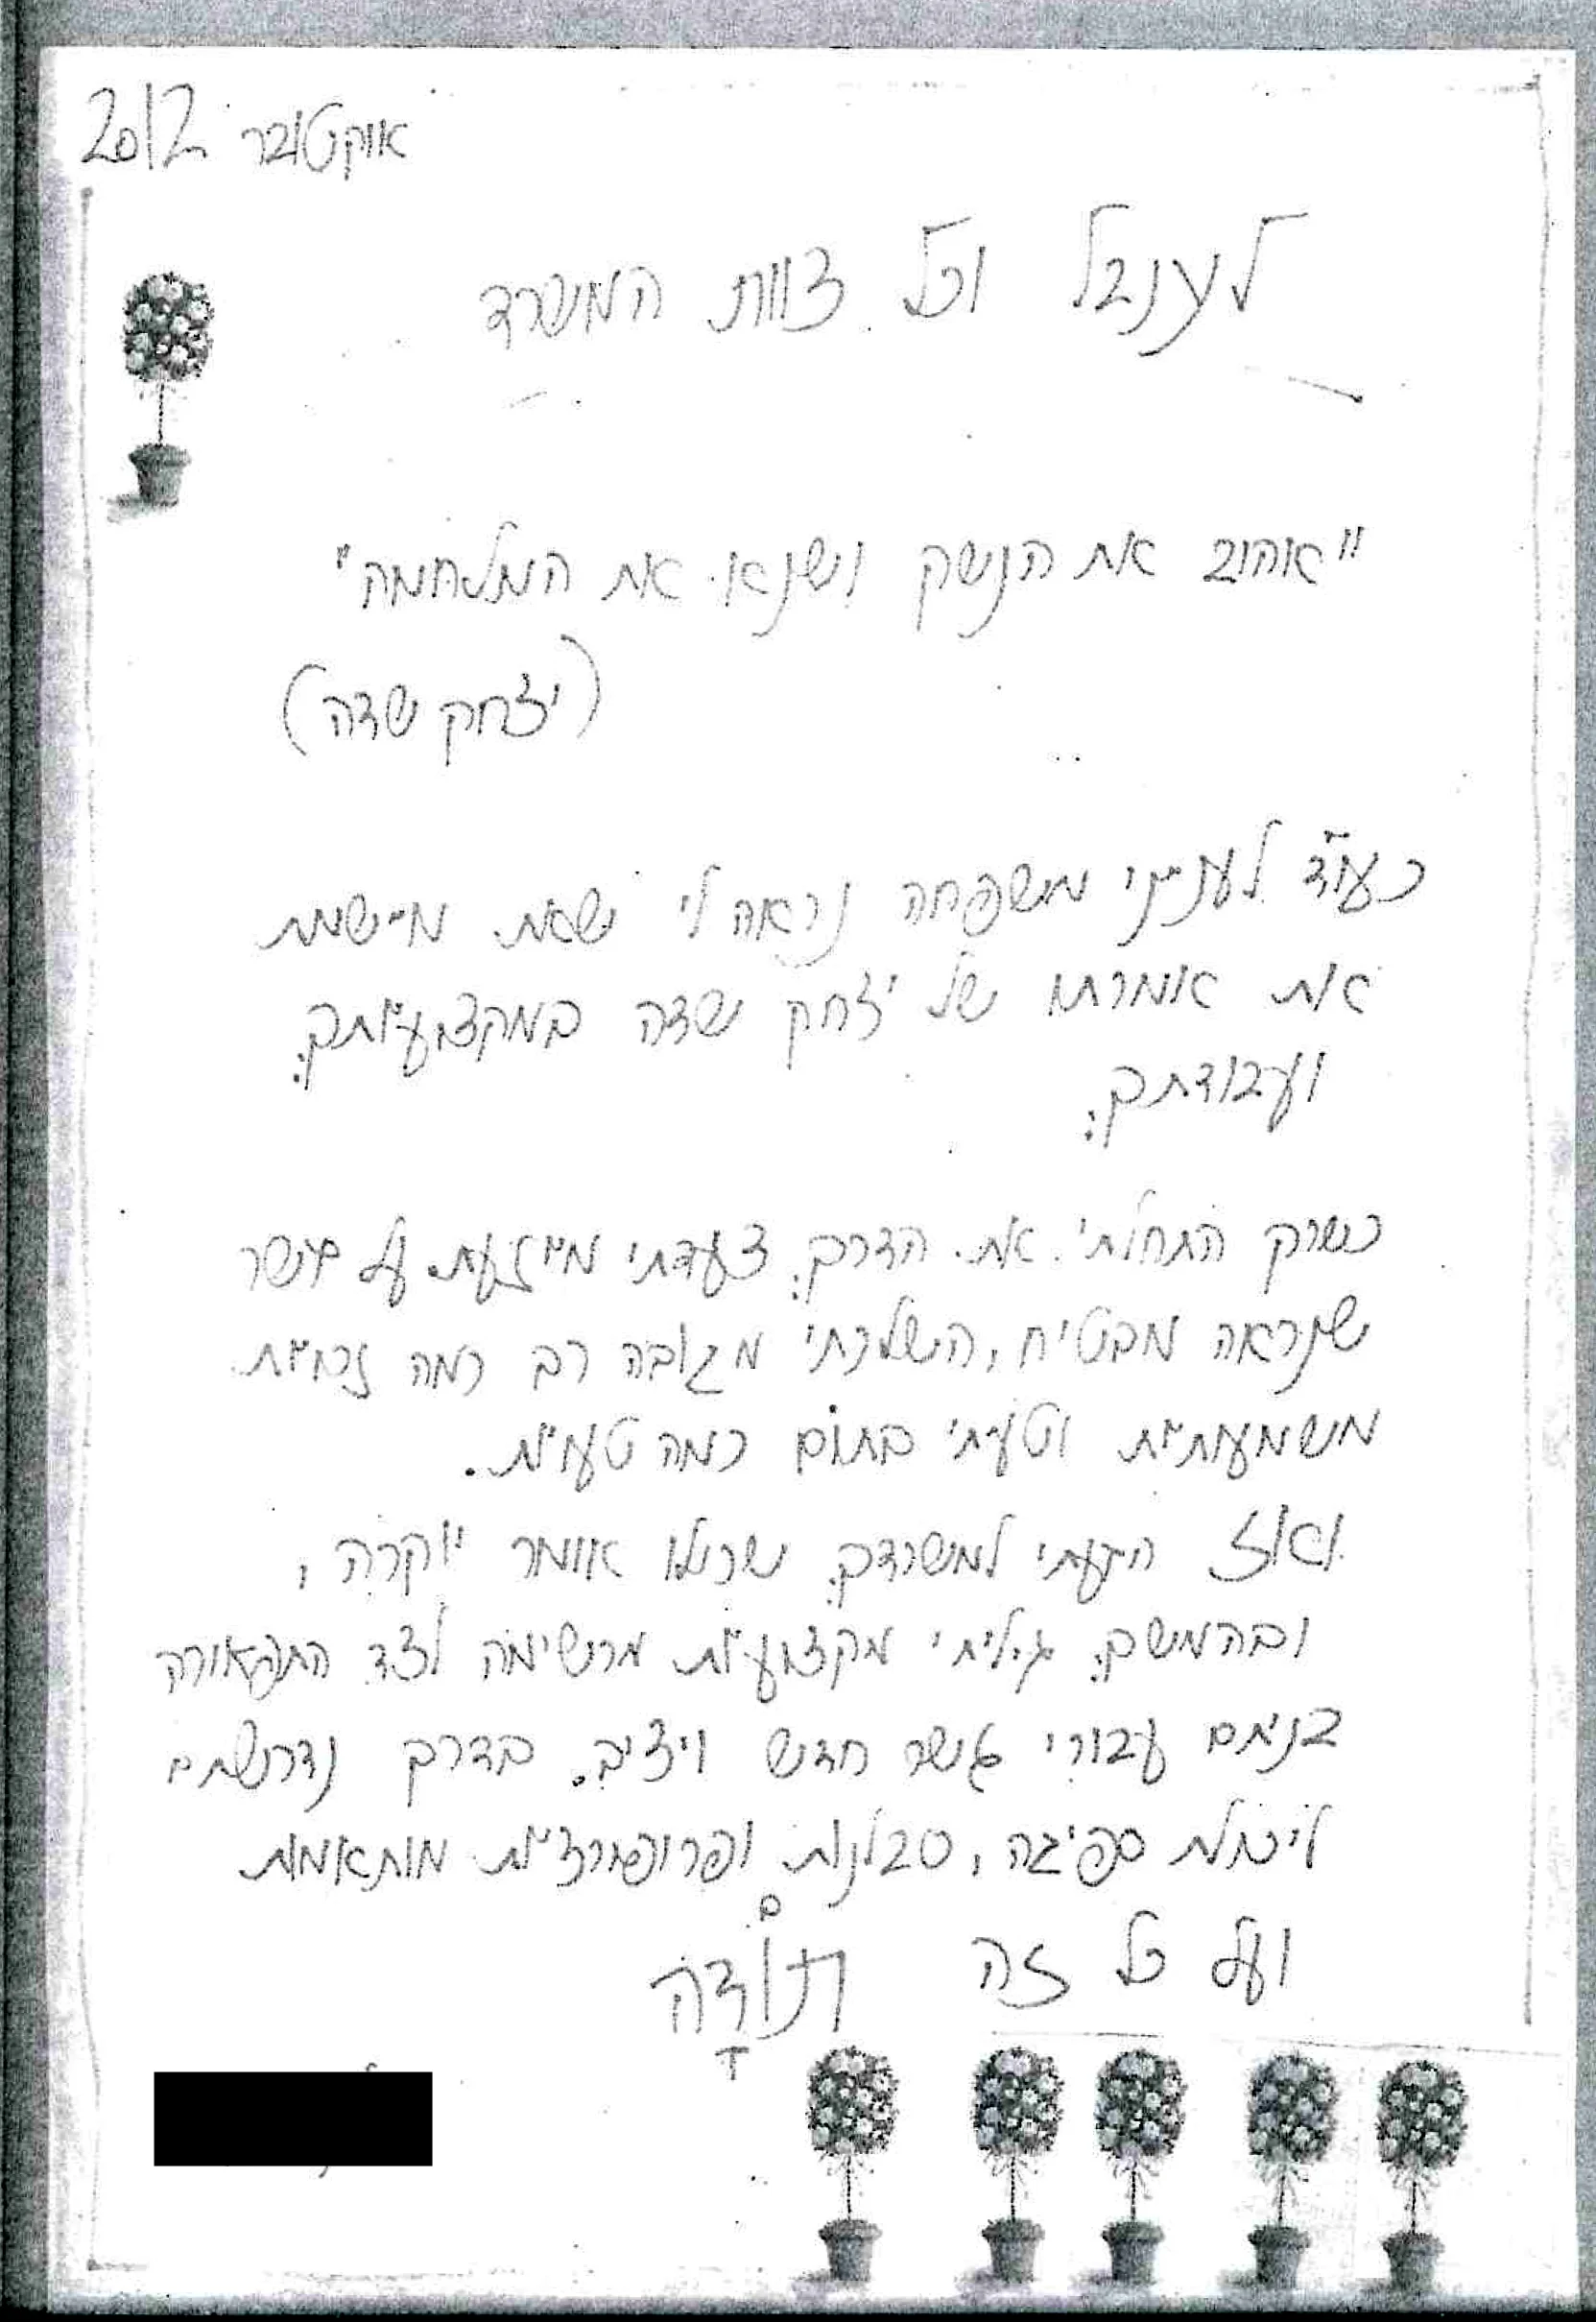 אוקטובר 2012
לענבל וכל צוות המשרד
"אהוב את הנשק ושנא את המלחמה"
(יצחק שדה)
כעו"ד לענייני משפחה נראה לי שאת מיישמת
את אמרתו של יצחק שדה במקצועיותך
ועבודתך.
כשרק התחלתי את הדרך צעדתי מיוזעת על גשר
שנראה מבטיח, השלכתי מגובה רב כמה זכויות
משמעותיות וטעיתי בתום כמה טעויות.
ואז הגעתי למשרדך שכולו אומר יוקרה,
ובהמשך גיליתי מקצועיות מרשימה לצד התפאורה
בניתם עבורי גשר חדש ויציב. בדרך נדרשתם
ליכולת ספיגה, סבלנות ופרופורציות מותאמות
ועל כל זה תּוֹדָה